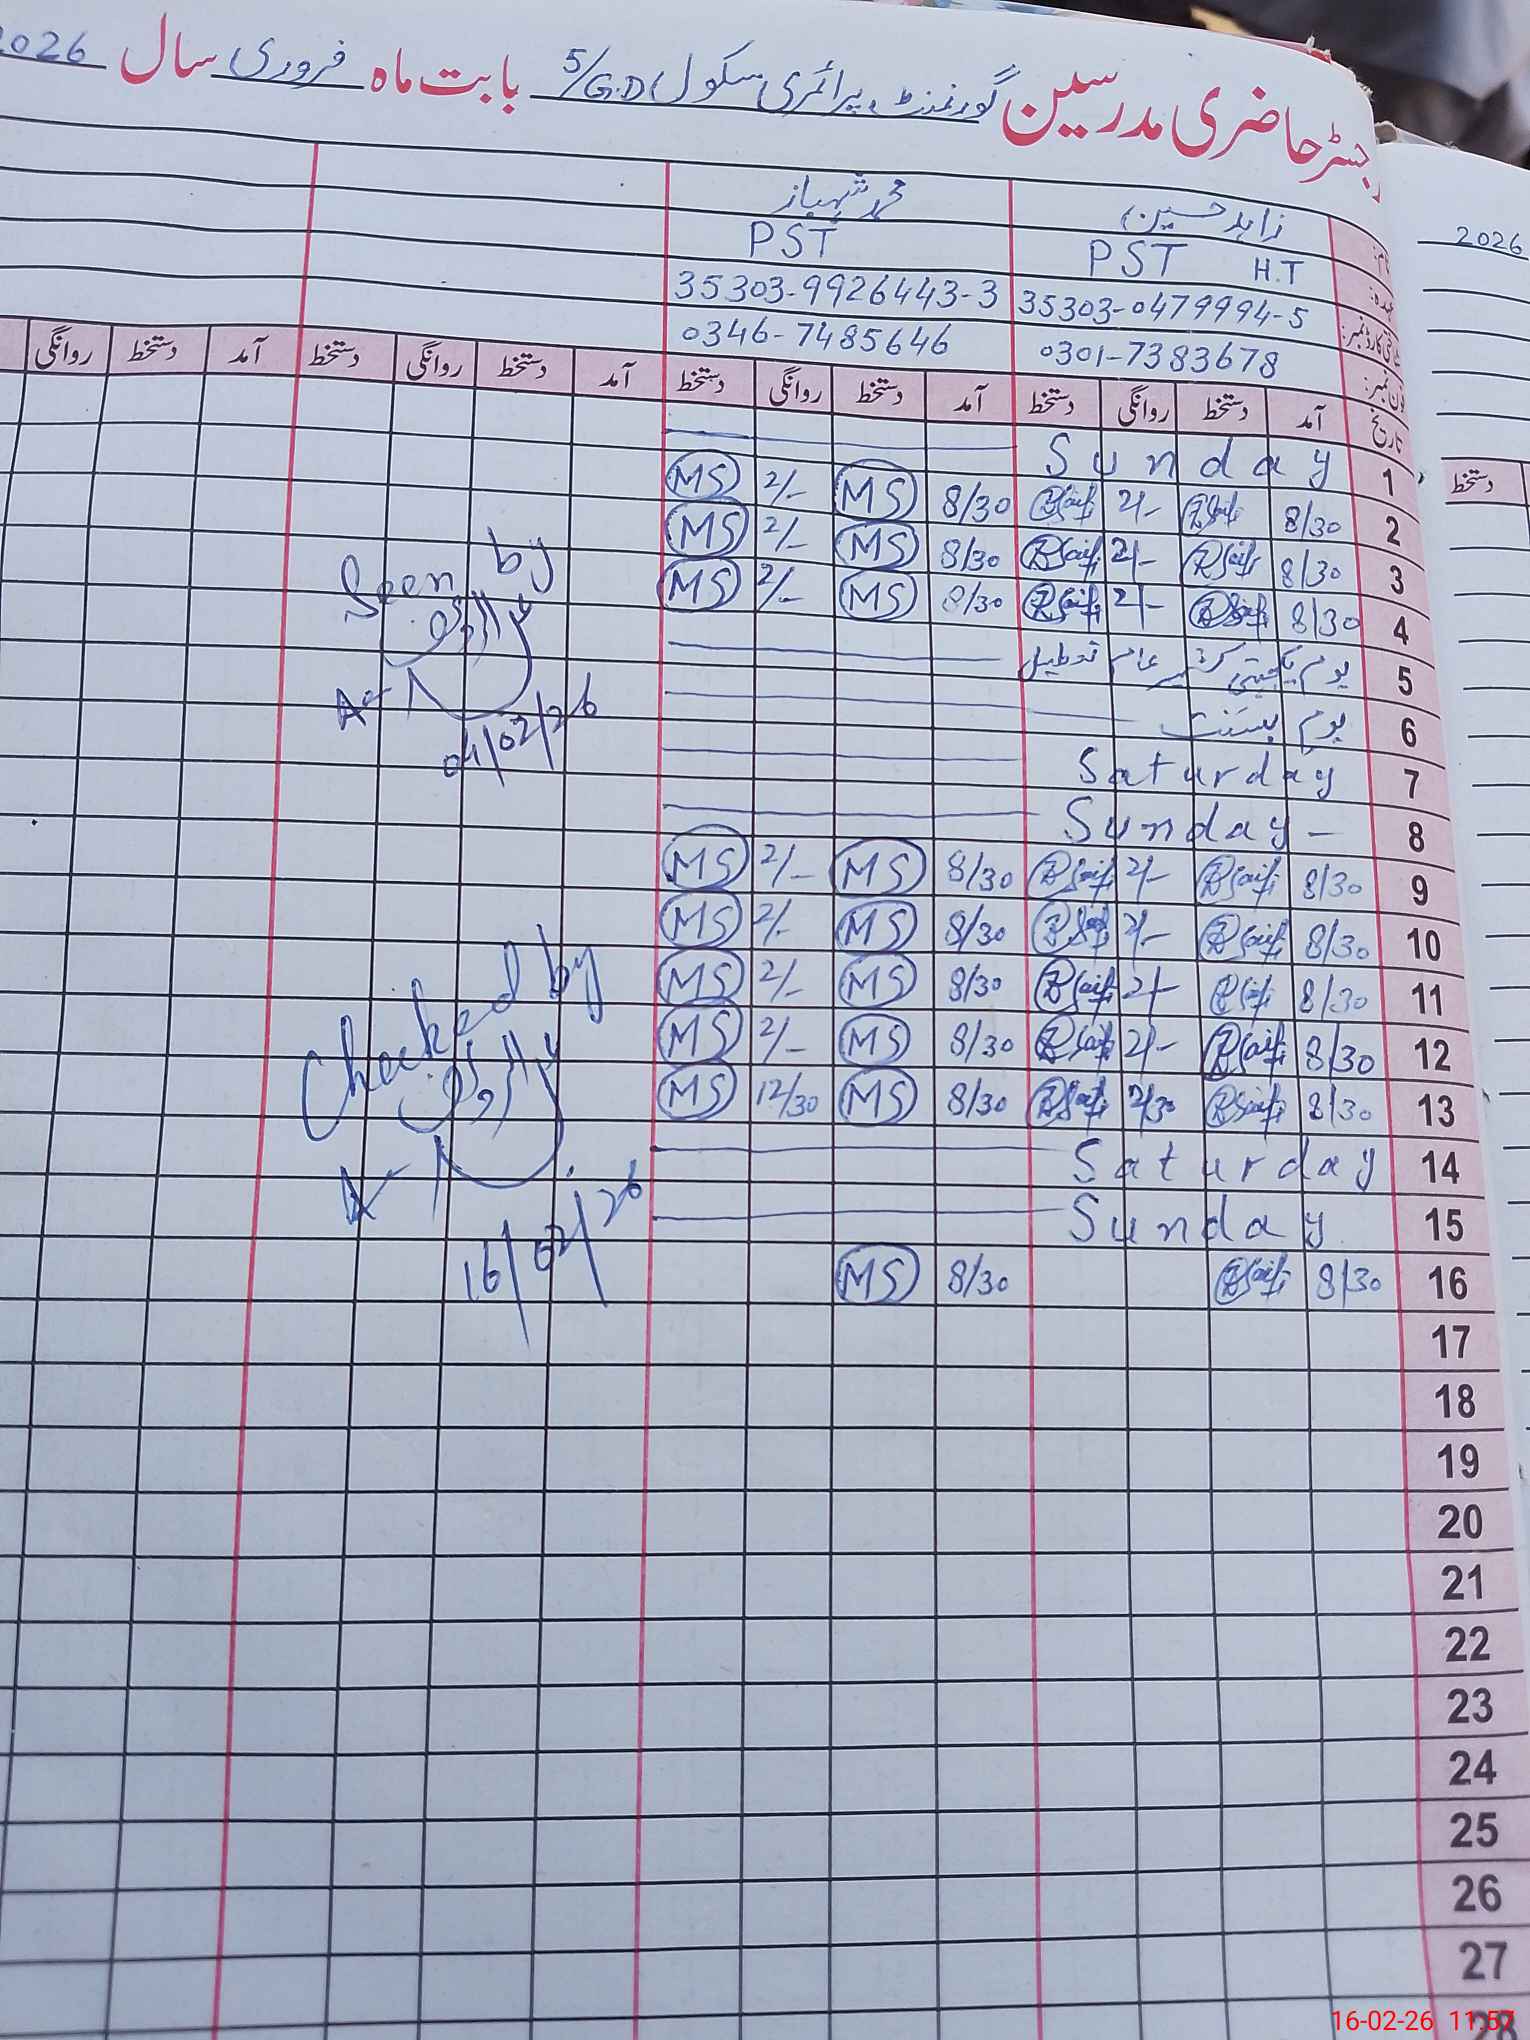 رجسٹر حاضری مدرسین گورنمنٹ پرائمری سکول 5/G.D بابت ماہ فروری سال 2026
زاہد حسین محمد شہباز
PST H.T PST
35303-0479994-5 35303-9926443-3
0301-7383678 0346-7485646
تاریخ آمد دستخط روانگی دستخط آمد دستخط روانگی دستخط آمد دستخط روانگی دستخط آمد دستخط روانگی
1 Sunday
2 8/30 2/- 8/30 MS 2/- MS
3 8/30 2/- 8/30 MS 2/- MS
4 8/30 2/- 8/30 MS 2/- MS
5 یوم یکجہتی کشمیر عام تعطیل
6 یوم بسنت
7 Saturday
8 Sunday -
9 8/30 2/- 8/30 MS 2/- MS
10 8/30 2/- 8/30 MS 2/- MS
11 8/30 2/- 8/30 MS 2/- MS
12 8/30 2/- 8/30 MS 2/- MS
13 8/30 8/30 MS 12/30 MS
14 Saturday
15 Sunday
16 8/30 8/30 MS
17
18
19
20
21
22
23
24
25
26
27
28
Seen by
04/02/26
Checked by
16/02/26
2026
دستخط
16-02-26 11:57